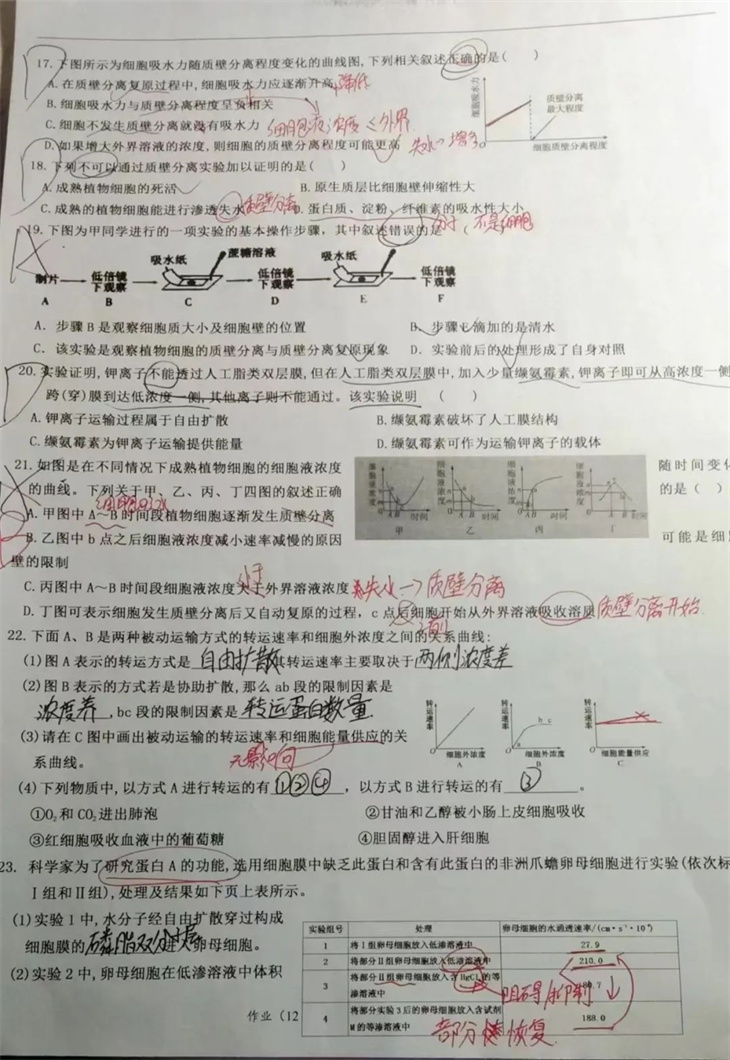 17.下图所示为细胞吸水力随质壁分离程度变化的曲线图,下列相关叙述正确的是(　　)
A.在质壁分离复原过程中,细胞吸水力应逐渐升高 降低
B.细胞吸水力与质壁分离程度呈负相关
C.细胞不发生质壁分离就没有吸水力 细胞液浓度 ≤ 外界
D.如果增大外界溶液的浓度,则细胞的质壁分离程度可能更高 失水 增多
细胞吸水力
质壁分离
最大程度
O
细胞质壁分离程度
18.下列不可以通过质壁分离实验加以证明的是(　　)
A.成熟植物细胞的死活 B.原生质层比细胞壁伸缩性大
C.成熟的植物细胞能进行渗透失水 质壁分离 D.蛋白质、淀粉、纤维素的吸水性大小
分子 不是细胞
19.下图为甲同学进行的一项实验的基本操作步骤，其中叙述错误的是（
吸水纸 蔗糖溶液 吸水纸
制片 低倍镜下观察 低倍镜下观察 低倍镜下观察
A B C D E F
A．步骤B是观察细胞质大小及细胞壁的位置 B、步骤E滴加的是清水
C．该实验是观察植物细胞的质壁分离与质壁分离复原现象 D．实验前后的处理形成了自身对照
20.实验证明,钾离子不能透过人工脂类双层膜,但在人工脂类双层膜中,加入少量缬氨霉素,钾离子即可从高浓度一侧
跨(穿)膜到达低浓度一侧,其他离子则不能通过。该实验说明（　　）
A.钾离子运输过程属于自由扩散 B.缬氨霉素破坏了人工膜结构
C.缬氨霉素为钾离子运输提供能量 D.缬氨霉素可作为运输钾离子的载体
21.如图是在不同情况下成熟植物细胞的细胞液浓度 随时间变化
的曲线。下列关于甲、乙、丙、丁四图的叙述正确 的是（　）
细胞液浓度 细胞液浓度 细胞液浓度 细胞液浓度
A B 时间 A B 时间 A B 时间 A B 时间
甲 乙 丙 丁
A.甲图中A～B时间段植物细胞逐渐发生质壁分离
B.乙图中b点之后细胞液浓度减小速率减慢的原因 可能是细胞
壁的限制
C.丙图中A～B时间段细胞液浓度大于外界溶液浓度 小于 失水→质壁分离
D.丁图可表示细胞发生质壁分离后又自动复原的过程，c点后细胞开始从外界溶液吸收溶质 质壁分离开始
22.下面A、B是两种被动运输方式的转运速率和细胞外浓度之间的关系曲线:
(1)图A表示的转运方式是 自由扩散 其转运速率主要取决于 两侧浓度差
(2)图B表示的方式若是协助扩散,那么ab段的限制因素是
浓度差,bc段的限制因素是 转运蛋白数量
(3)请在C图中画出被动运输的转运速率和细胞能量供应的关
系曲线。 无影响
转运速率 转运速率 转运速率
a b c
O 细胞外浓度 O 细胞外浓度 O 细胞能量供应
A B C
(4)下列物质中,以方式A进行转运的有 ①②④ ，以方式B进行转运的有 ③ 。
①O₂和CO₂进出肺泡 ②甘油和乙醇被小肠上皮细胞吸收
③红细胞吸收血液中的葡萄糖 ④胆固醇进入肝细胞
23. 科学家为了研究蛋白A的功能,选用细胞膜中缺乏此蛋白和含有此蛋白的非洲爪蟾卵母细胞进行实验(依次标
Ⅰ组和Ⅱ组),处理及结果如下页上表所示。
(1)实验1中,水分子经自由扩散穿过构成
细胞膜的 磷脂双分子层 卵母细胞。
(2)实验2中,卵母细胞在低渗溶液中体积
实验组号 处理 卵母细胞的水通透速率/(cm·s⁻¹·10⁻⁴)
1 将Ⅰ组卵母细胞放入低渗溶液中 27.9
2 将部分Ⅱ组卵母细胞放入低渗溶液中 210.0
3 将部分Ⅱ组卵母细胞放入含HgCl₂的等渗溶液中 80.7 阻碍 抑制
4 将部分实验3后的卵母细胞放入含试剂M的等渗溶液中 188.0 部分 恢复
作业（12